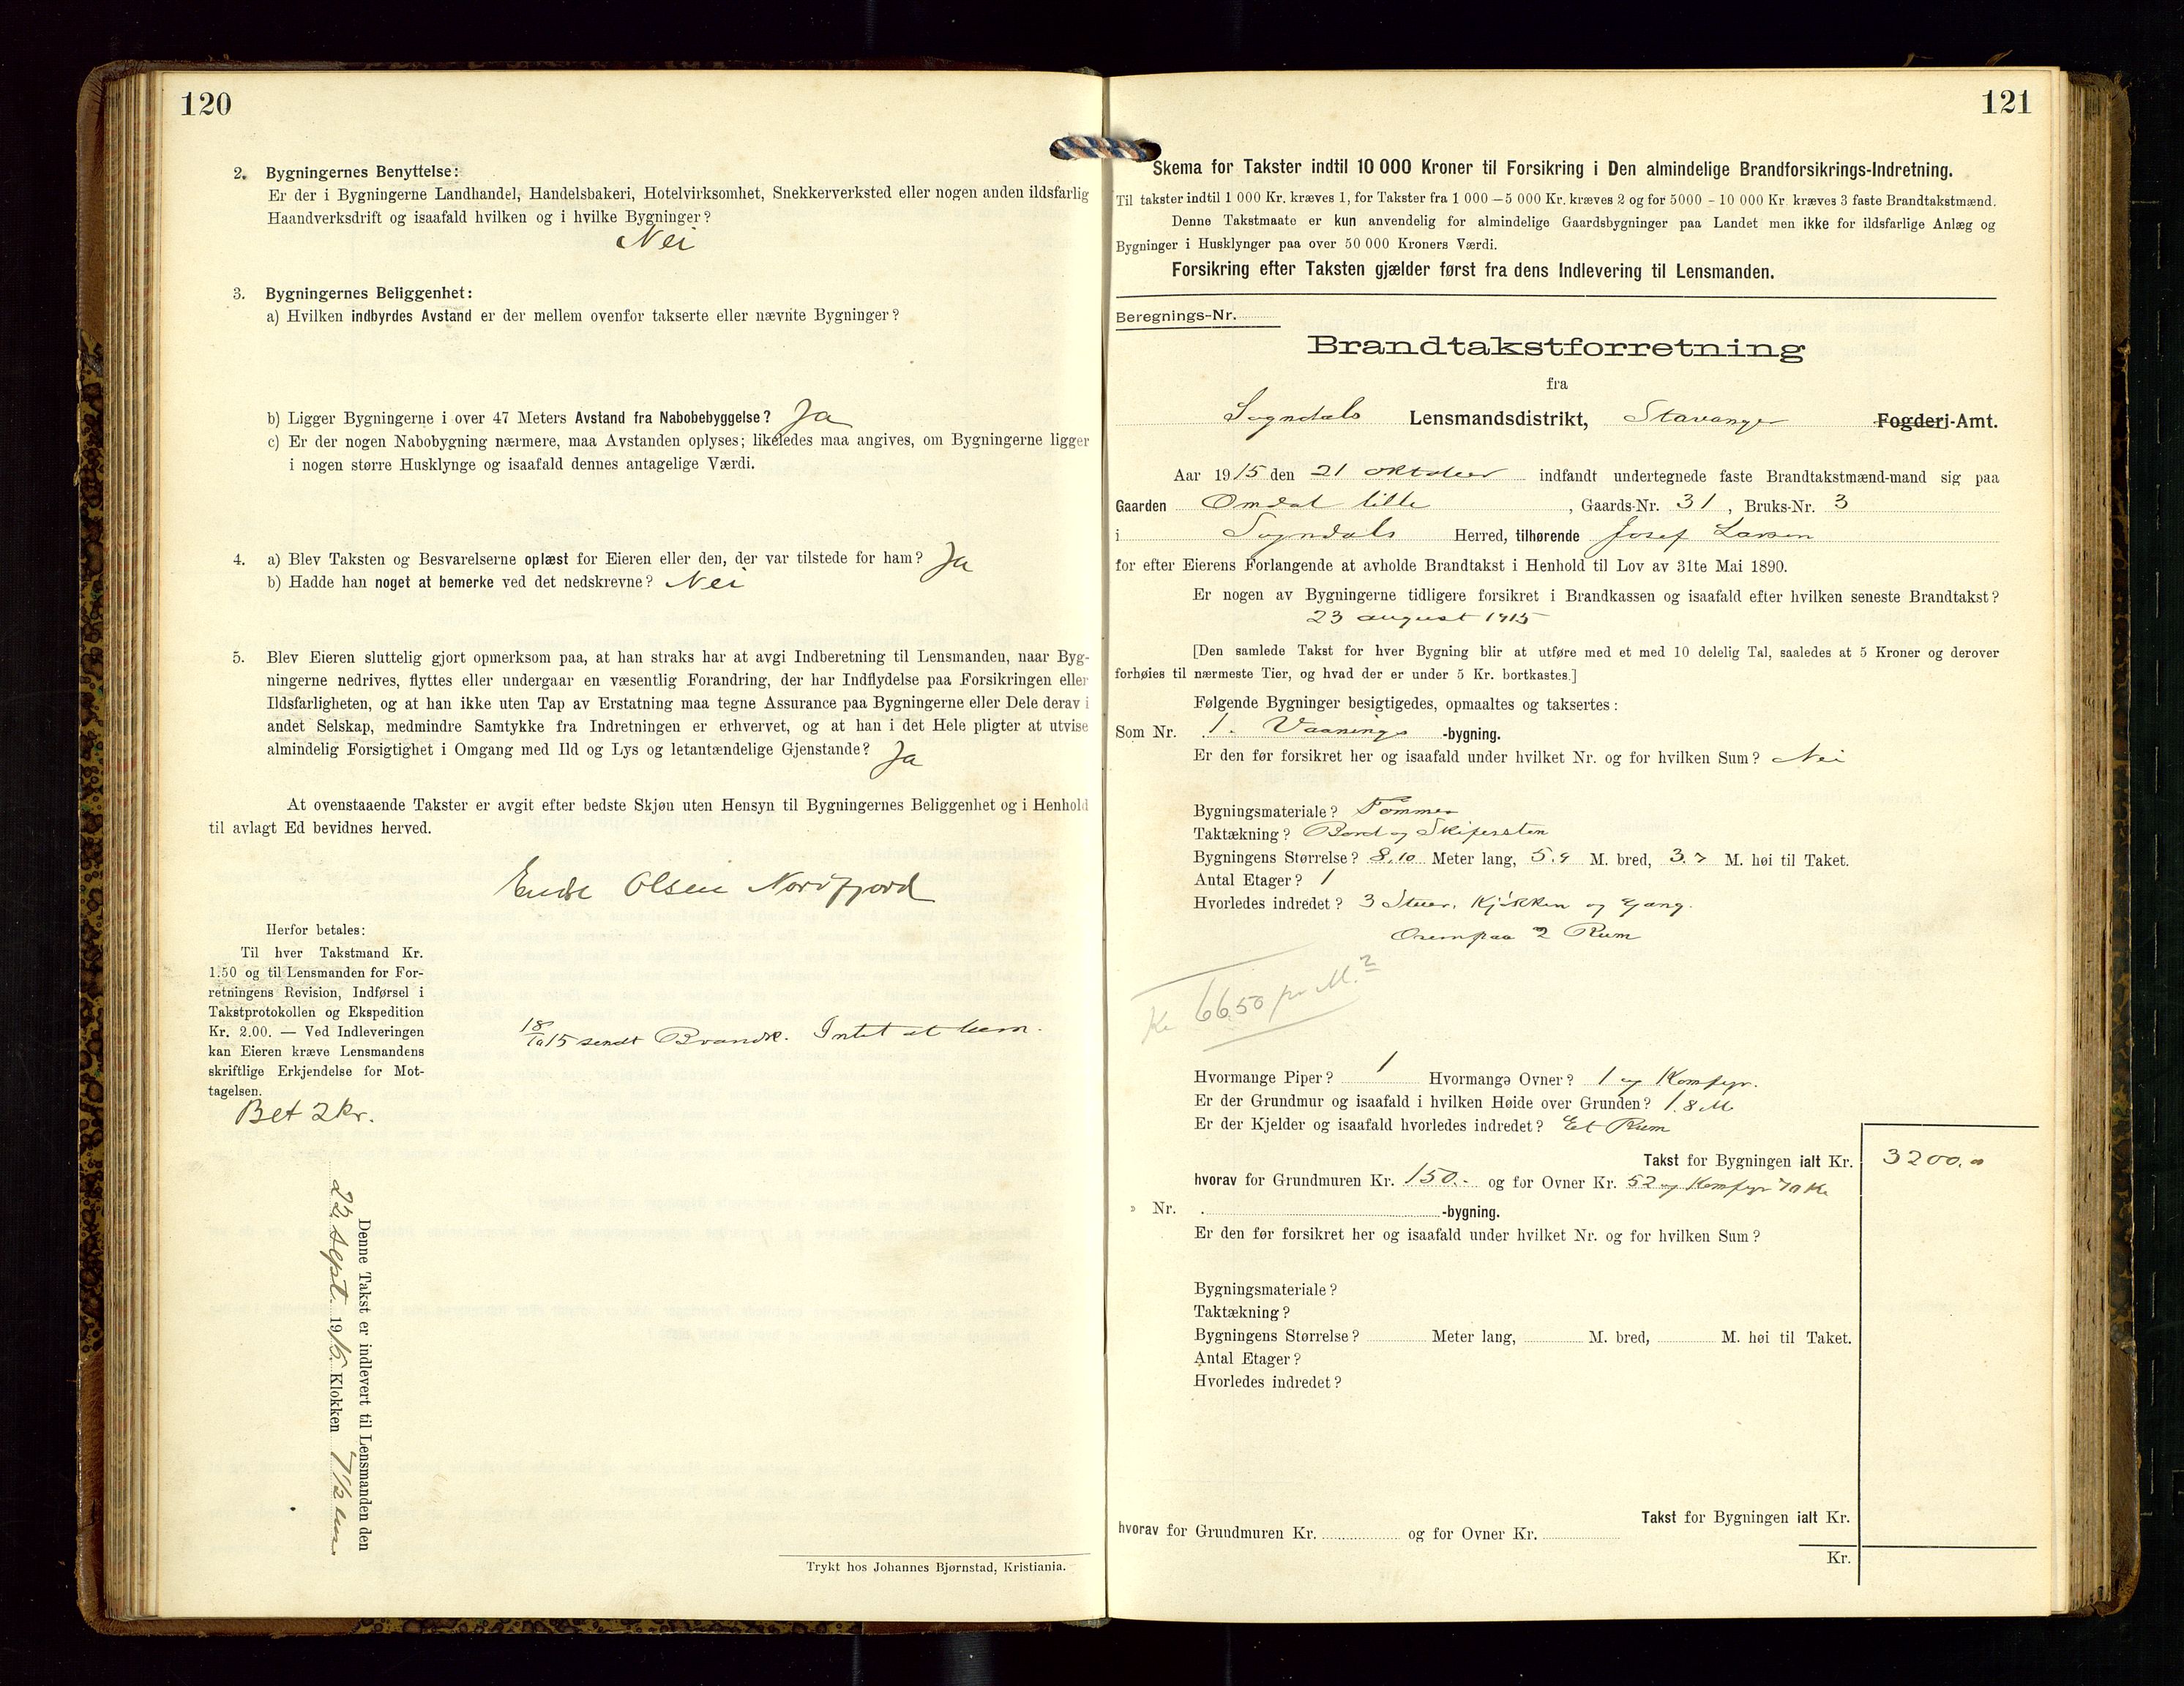 120
2. Bygningernes Benyttelse:
Er der i Bygningerne Landhandel, Handelsbakeri, Hotelvirksomhet, Snekkerverksted eller nogen anden ildsfarlig
Haandverksdrift og isaafald hvilken og i hvilke Bygninger?
Nei
3. Bygningernes Beliggenhet:
a) Hvilken indbyrdes Avstand er der mellem ovenfor takserte eller nævnte Bygninger?
b) Ligger Bygningerne i over 47 Meters Avstand fra Nabobebyggelse? Ja
c) Er der nogen Nabobygning nærmere, maa Avstanden oplyses; likeledes maa angives, om Bygningerne ligger
i nogen større Husklynge og isaafald dennes antagelige Værdi.
4. a) Blev Taksten og Besvarelserne oplæst for Eieren eller den, der var tilstede for ham? Ja
b) Hadde han noget at bemerke ved det nedskrevne? Nei
5. Blev Eieren sluttelig gjort opmerksom paa, at han straks har at avgi Indberetning til Lensmanden, naar Byg-
ningerne nedrives, flyttes eller undergaar en væsentlig Forandring, der har Indflydelse paa Forsikringen eller
Ildsfarligheten, og at han ikke uten Tap av Erstatning maa tegne Assurance paa Bygningerne eller Dele derav i
andet Selskap, medmindre Samtykke fra Indretningen er erhvervet, og at han i det Hele pligter at utvise
almindelig Forsigtighet i Omgang med Ild og Lys og letantændelige Gjenstande? Ja
At ovenstaaende Takster er avgit efter bedste Skjøn uten Hensyn til Bygningernes Beliggenhet og i Henhold
til avlagt Ed bevidnes herved.
Endre Olsen Nordfjord
Herfor betales:
Til hver Takstmand Kr.
1.50 og til Lensmanden for For-
retningens Revision, Indførsel i
Takstprotokollen og Ekspedition
Kr. 2.00. — Ved Indleveringen
kan Eieren kræve Lensmandens
skriftlige Erkjendelse for Mot-
tagelsen.
Bet 2 kr.
18/10 15 sendt Brandk. Intet at bem.
Denne Takst er indlevert til Lensmanden den
22 sept. 1915. Klokken 7 1/2
Trykt hos Johannes Bjørnstad, Kristiania.
121
Skema for Takster indtil 10 000 Kroner til Forsikring i Den almindelige Brandforsikrings-Indretning.
Til takster indtil 1 000 Kr. kræves 1, for Takster fra 1 000—5 000 Kr. kræves 2 og for 5000 - 10 000 Kr. kræves 3 faste Brandtakstmænd.
Denne Takstmaate er kun anvendelig for almindelige Gaardsbygninger paa Landet men ikke for ildsfarlige Anlæg og
Bygninger i Husklynger paa over 50 000 Kroners Værdi.
Forsikring efter Taksten gjælder først fra dens Indlevering til Lensmanden.
Beregnings-Nr.
Brandtakstforretning
fra
Sogndals Lensmandsdistrikt, Stavanger Fogderi-Amt.
Aar 1915 den 21 oktober indfandt undertegnede faste Brandtakstmænd-mand sig paa
Gaarden Omdal lille, Gaards-Nr. 31, Bruks-Nr. 3
i Sogndals Herred, tilhørende Josef Larsen
for efter Eierens Forlangende at avholde Brandtakst i Henhold til Lov av 31te Mai 1890.
Er nogen av Bygningerne tidligere forsikret i Brandkassen og isaafald efter hvilken seneste Brandtakst?
23 august 1915
[Den samlede Takst for hver Bygning blir at utføre med et med 10 delelig Tal, saaledes at 5 Kroner og derover
forhøies til nærmeste Tier, og hvad der er under 5 Kr. bortkastes.]
Følgende Bygninger besigtigedes, opmaaltes og taksertes:
Som Nr. 1. Vaanings -bygning.
Er den før forsikret her og isaafald under hvilket Nr. og for hvilken Sum? Nei
Bygningsmateriale? Tømmer
Taktækning? Bord og Skifersten
Bygningens Størrelse? 8.10 Meter lang, 5.9 M. bred, 3.7 M. høi til Taket.
Antal Etager? 1
Hvorledes indredet? 3 Stuer, Kjøkken og Gang.
Ovenpaa 2 Rum
Kr 66.50 pr M.²
Hvormange Piper? 1 Hvormange Ovner? 1 og Komfyr.
Er der Grundmur og isaafald i hvilken Høide over Grunden? 1.8 M
Er der Kjelder og isaafald hvorledes indredet? Et Rum
Takst for Bygningen ialt Kr. 3200.00
hvorav for Grundmuren Kr. 150.- og for Ovner Kr. 52 og Komfyr 70 Kr
» Nr. -bygning.
Er den før forsikret her og isaafald under hvilket Nr. og for hvilken Sum?
Bygningsmateriale?
Taktækning?
Bygningens Størrelse? Meter lang, M. bred, M. høi til Taket.
Antal Etager?
Hvorledes indredet?
Takst for Bygningen ialt Kr.
hvorav for Grundmuren Kr. og for Ovner Kr.
Kr.